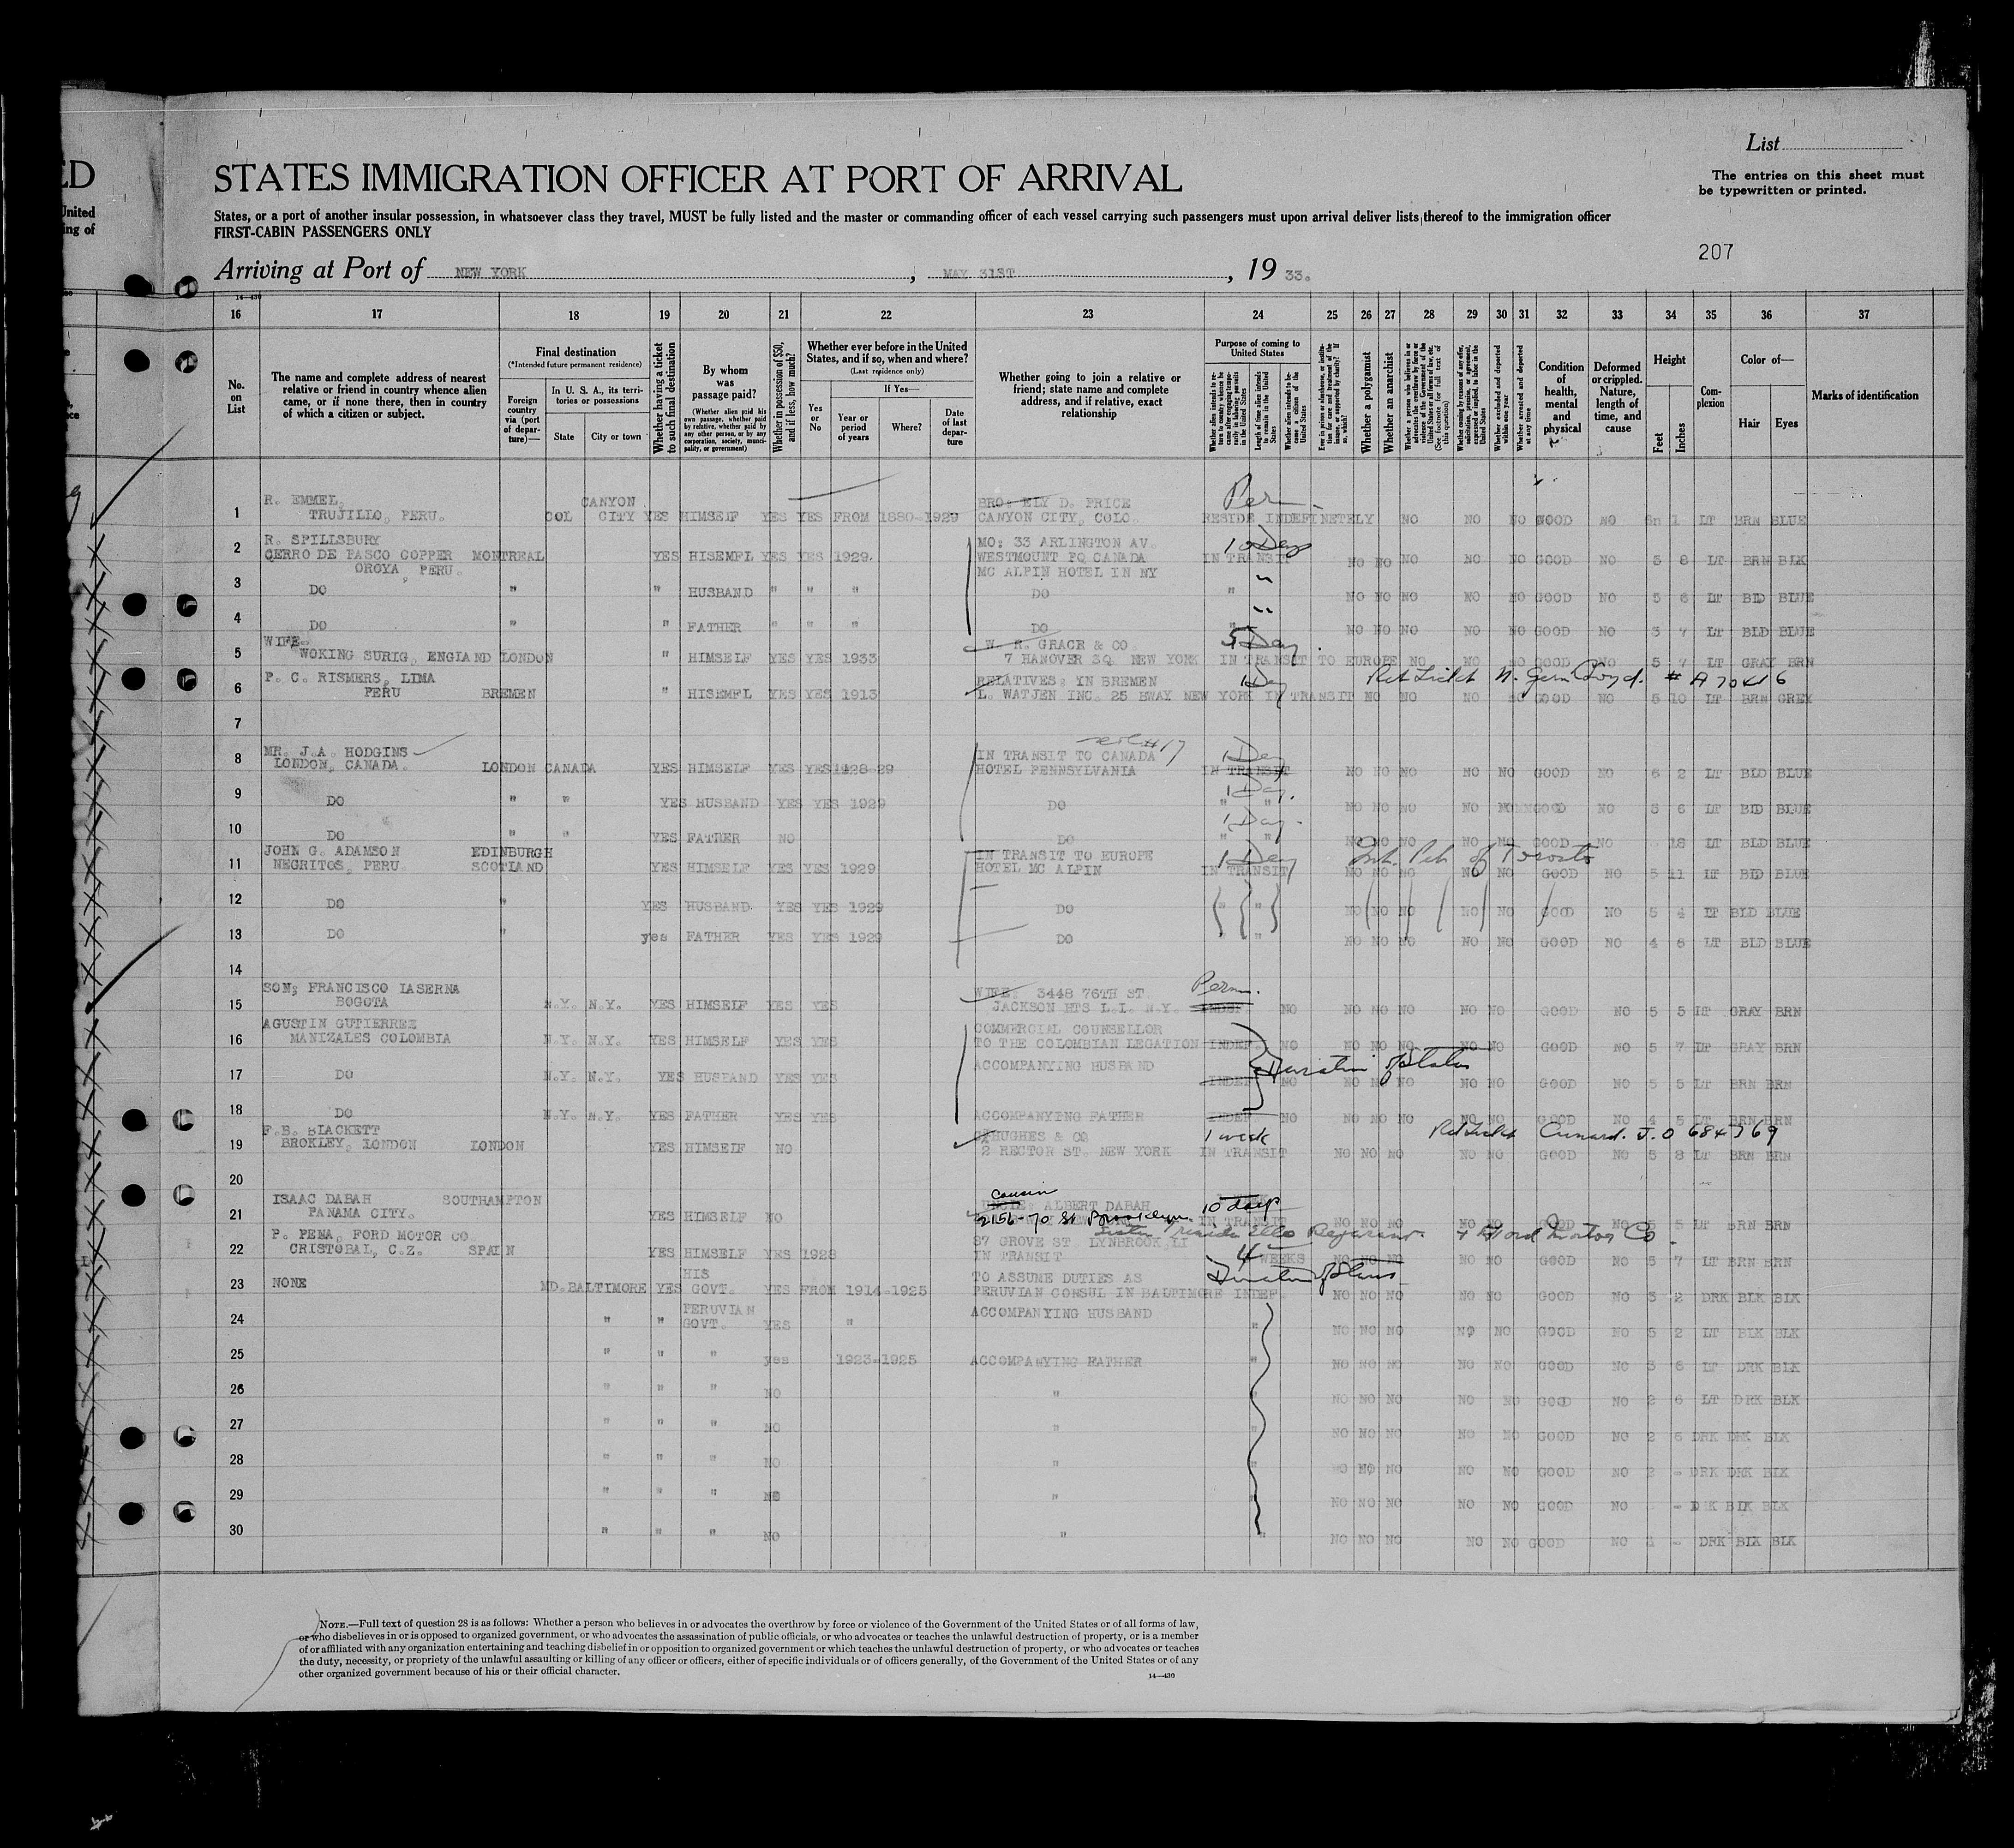 List
ED
STATES IMMIGRATION OFFICER AT PORT OF ARRIVAL
The entries on this sheet must
be typewritten or printed.
United
ing of
States, or a port of another insular possession, in whatsoever class they travel, MUST be fully listed and the master or commanding officer of each vessel carrying such passengers must upon arrival deliver lists thereof to the immigration officer
FIRST-CABIN PASSENGERS ONLY
207
Arriving at Port of NEW YORK , MAY 31ST , 19 33.
14—430
16 17 18 19 20 21 22 23 24 25 26 27 28 29 30 31 32 33 34 35 36 37
No. on List
The name and complete address of nearest relative or friend in country whence alien came, or if none there, then in country of which a citizen or subject.
Final destination
(*Intended future permanent residence)
Foreign country via (port of departure)—
In U. S. A., its territories or possessions
State
City or town
Whether having a ticket to such final destination
By whom was passage paid?
(Whether alien paid his own passage, whether paid by relative, whether paid by any other person, or by any corporation, society, municipality, or government)
Whether in possession of $50, and if less, how much?
Whether ever before in the United States, and if so, when and where?
(Last residence only)
If Yes—
Yes or No
Year or period of years
Where?
Date of last departure
Whether going to join a relative or friend; state name and complete address, and if relative, exact relationship
Purpose of coming to United States
Length of time alien intends to remain in the United States
Whether alien intends to become a citizen of the United States
Whether a polygamist
Whether an anarchist
(See footnote for full text of this question)
Whether excluded and deported within one year
Whether arrested and deported at any time
Condition of health, mental and physical
Deformed or crippled. Nature, length of time, and cause
Height
Feet
Inches
Complexion
Color of—
Hair
Eyes
Marks of identification
1 R. EMMEL, TRUJILLO, PERU. COL CANYON CITY YES HIMSELF YES YES FROM 1880-1929 BRO: ELY D. PRICE CANYON CITY, COLO. Per RESIDE INDEFINETELY NO NO NO GOOD NO LT BRN BLUE
2 R. SPILLSBURY CERRO DE PASCO COPPER OROYA, PERU. MONTREAL YES HISEMFL YES YES 1929. MO: 33 ARLINGTON AV. WESTMOUNT PQ CANADA MC ALPIN HOTEL IN NY 10 Days IN TRANSIT NO NO NO NO NO GOOD NO 5 8 LT BRN BLK
3 DO " " HUSBAND " " " DO " NO NO NO NO NO GOOD NO 5 6 LT BLD BLUE
4 DO " " FATHER " " " DO " NO NO NO NO NO GOOD NO 3 7 LT BLD BLUE
5 WIFE. WOKING SURIG, ENGLAND LONDON " HIMSELF YES YES 1933 W. R. GRACE & CO. 7 HANOVER SQ. NEW YORK 5 Day. IN TRANSIT TO EUROPE NO NO NO GOOD NO 5 7 LT GRAY BRN
6 P. C. RISMERS, LIMA PERU BREMEN " HISEMFL YES YES 1913 RELATIVES: IN BREMEN L. WATJEN INC. 25 BWAY NEW YORK IN TRANSIT 1 Day # A 70416 NO NO NO NO GOOD NO 5 10 LT BRN GREY
7
8 MR. J.A. HODGINS LONDON, CANADA. LONDON CANADA YES HIMSELF YES YES 1928-29 IN TRANSIT TO CANADA HOTEL PENNSYLVANIA 1 Day IN TRANSIT NO NO NO NO NO GOOD NO 6 2 LT BLD BLUE
9 DO " " YES HUSBAND YES YES 1929 DO 1 Day. " " NO NO NO NO NO GOOD NO 5 6 LT BLD BLUE
10 DO " " YES FATHER NO DO 1 Day. " " NO NO NO NO NO GOOD NO 18 LT BLD BLUE
11 JOHN G. ADAMSON NEGRITOS, PERU EDINBURGH SCOTLAND YES HIMSELF YES YES 1929 IN TRANSIT TO EUROPE HOTEL MC ALPIN 1 Day IN TRANSIT Int. Pet. of Toronto NO NO NO NO NO GOOD NO 5 11 LT BLD BLUE
12 DO " YES HUSBAND YES YES 1929 DO " " NO NO NO NO NO GOOD NO 5 4 LT BLD BLUE
13 DO " yes FATHER YES YES 1929 DO " " NO NO NO NO NO GOOD NO 4 6 LT BLD BLUE
14
15 SON; FRANCISCO LASERNA BOGOTA N.Y. N.Y. YES HIMSELF YES YES WIFE: 3448 76TH ST. JACKSON HTS L.I. N.Y. Perm. INDEF. NO NO NO NO NO NO GOOD NO 5 5 LT GRAY BRN
16 AGUSTIN GUTIERREZ MANIZALES COLOMBIA N.Y. N.Y. YES HIMSELF YES YES COMMERCIAL COUNSELLOR TO THE COLOMBIAN LEGATION INDEF. NO NO NO NO NO NO GOOD NO 5 7 LT GRAY BRN
17 DO N.Y. N.Y. YES HUSBAND YES YES ACCOMPANYING HUSBAND INDEF NO Duration of Status NO NO NO NO NO GOOD NO 5 5 LT BRN BRN
18 DO N.Y. N.Y. YES FATHER YES YES ACCOMPANYING FATHER INDEF NO NO NO NO NO NO GOOD NO 4 5 LT BRN BRN
19 F.B. BLACKETT BROKLEY, LONDON LONDON YES HIMSELF NO HUGHES & CO 2 RECTOR ST. NEW YORK 1 week IN TRANSIT Cunard. J.O 684369 NO NO NO NO NO GOOD NO 5 8 LT BRN BRN
20
21 ISAAC DABAH PANAMA CITY. SOUTHAMPTON YES HIMSELF NO Cousin UNCLE: ALBERT DABAH 2156-70 St Brooklyn 10 days IN TRANSIT NO NO NO NO NO GOOD NO 5 5 LT BRN BRN
22 P. PENA, FORD MOTOR CO CRISTOBAL, C.Z. SPAIN YES HIMSELF YES 1928 87 GROVE ST. LYNBROOK, LI IN TRANSIT 4 WEEKS Ford Motor Co. NO NO NO NO NO GOOD NO 5 7 LT BRN BRN
23 NONE MD. BALTIMORE YES HIS GOVT. YES FROM 1914-1925 TO ASSUME DUTIES AS PERUVIAN CONSUL IN BALTIMORE INDEF. Duration of Status NO NO NO NO NO GOOD NO 5 2 DRK BLK BLK
24 " " PERUVIAN GOVT. YES " ACCOMPANYING HUSBAND " NO NO NO NO NO GOOD NO 5 2 LT BLK BLK
25 " " " yes 1923-1925 ACCOMPANYING FATHER " NO NO NO NO NO GOOD NO 3 6 LT DRK BLK
26 " " " NO " " NO NO NO NO NO GOOD NO 2 6 LT DRK BLK
27 " " " NO " " NO NO NO NO NO GOOD NO 2 6 DRK DRK BLK
28 " " " NO " " NO NO NO NO NO GOOD NO 2 - DRK DRK BLK
29 " " " NO " " NO NO NO NO NO GOOD NO - DRK BLK BLK
30 " " " NO " " NO NO NO NO NO GOOD NO - DRK BLK BLK
NOTE.—Full text of question 28 is as follows: Whether a person who believes in or advocates the overthrow by force or violence of the Government of the United States or of all forms of law,
or who disbelieves in or is opposed to organized government, or who advocates the assassination of public officials, or who advocates or teaches the unlawful destruction of property, or is a member
of or affiliated with any organization entertaining and teaching disbelief in or opposition to organized government or which teaches the unlawful destruction of property, or who advocates or teaches
the duty, necessity, or propriety of the unlawful assaulting or killing of any officer or officers, either of specific individuals or of officers generally, of the Government of the United States or of any
other organized government because of his or their official character.
14—430